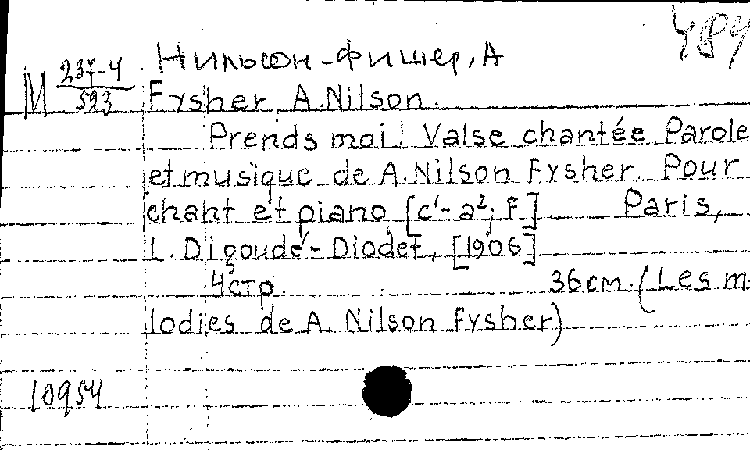 489
Нильсон-Фишер, А
М 237-4
593
Fysher, A. Nilson.
Prends moi! Valse chantée Parole
et musique de A. Nilson Fysher. Pour
chant et piano, [c¹-a²; F] Paris,
L. Digoudé-Diodet, [1906]
4 стр. 36 см. (Les m
lodies de A. Nilson Fysher)
10954